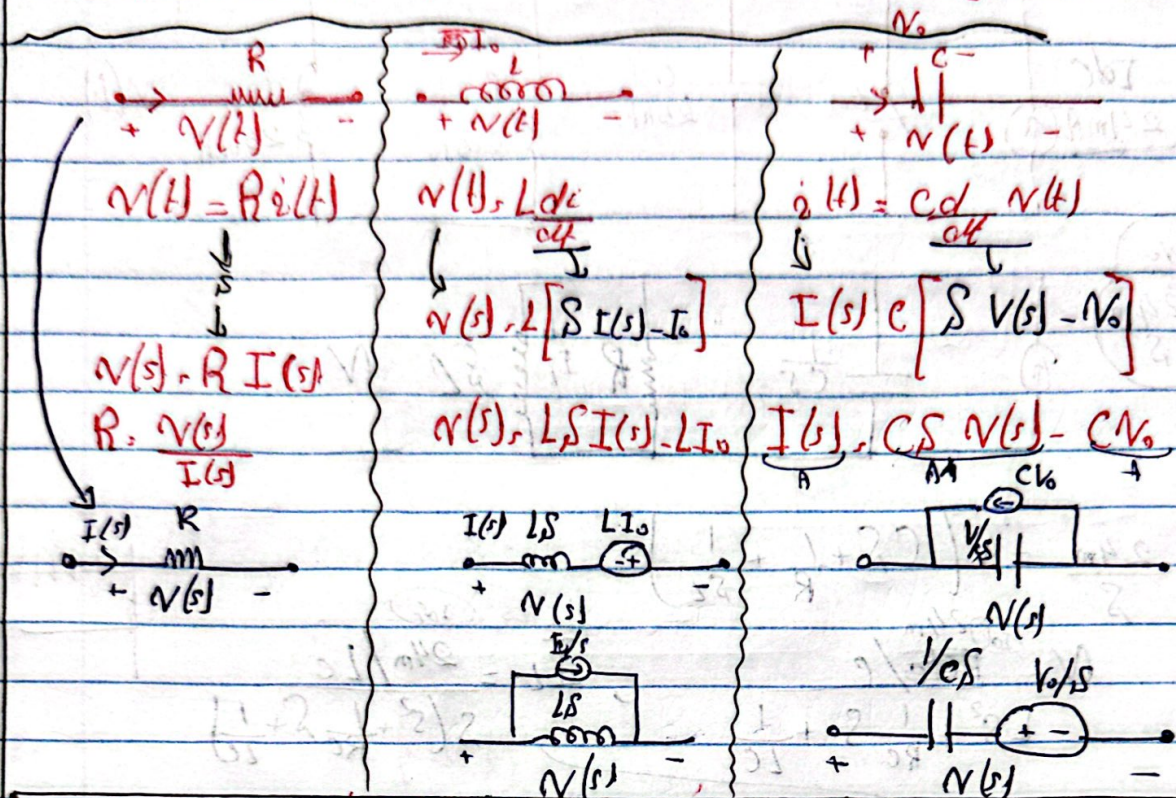 R
+ V(t) -
V(t) = R i(t)
V(s) = R I(s)
R = V(s) / I(s)
I(s) R
+ V(s) -
I₀
L
+ V(t) -
V(t) = L di/dt
V(s) = L[S I(s) - I₀]
V(s) = LS I(s) - LI₀
I(s) LS LI₀
- +
+ -
V(s)
I₀/s
LS
+ -
V(s)
V₀
+ C -
+ V(t) -
i(t) = C d/dt V(t)
I(s) C [S V(s) - V₀]
I(s) = CS V(s) - CV₀
A A A
CV₀
V(s)
1/CS V₀/S
+ -
+ V(s) -